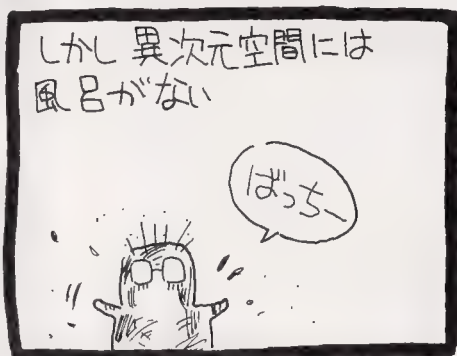 しかし異次元空間には
風呂がない
ばっちー